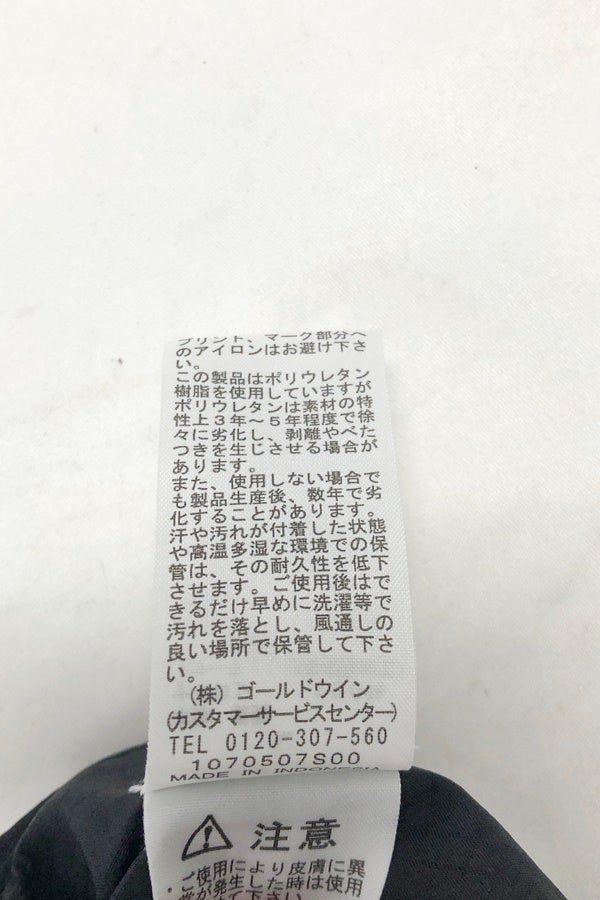 プリント、マーク部分へ
のアイロンはお避け下さ
い。
この製品はポリウレタン
樹脂を使用していますが
ポリウレタンは素材の特
性上3年～5年程度で徐
々に劣化し、剥離やべた
つきを生じさせる場合が
あります。
また、使用しない場合で
も製品生産後、数年で劣
化することがあります。
汗や汚れが付着した状態
や高温多湿な環境での保
管は、その耐久性を低下
させます。ご使用後はで
きるだけ早めに洗濯等で
汚れを落とし、風通しの
良い場所で保管して下さ
い。
(株) ゴールドウイン
(カスタマーサービスセンター)
TEL 0120-307-560
1070507S00
MADE IN INDONESIA
注意
・ご使用により皮膚に異
常が発生した時は使用